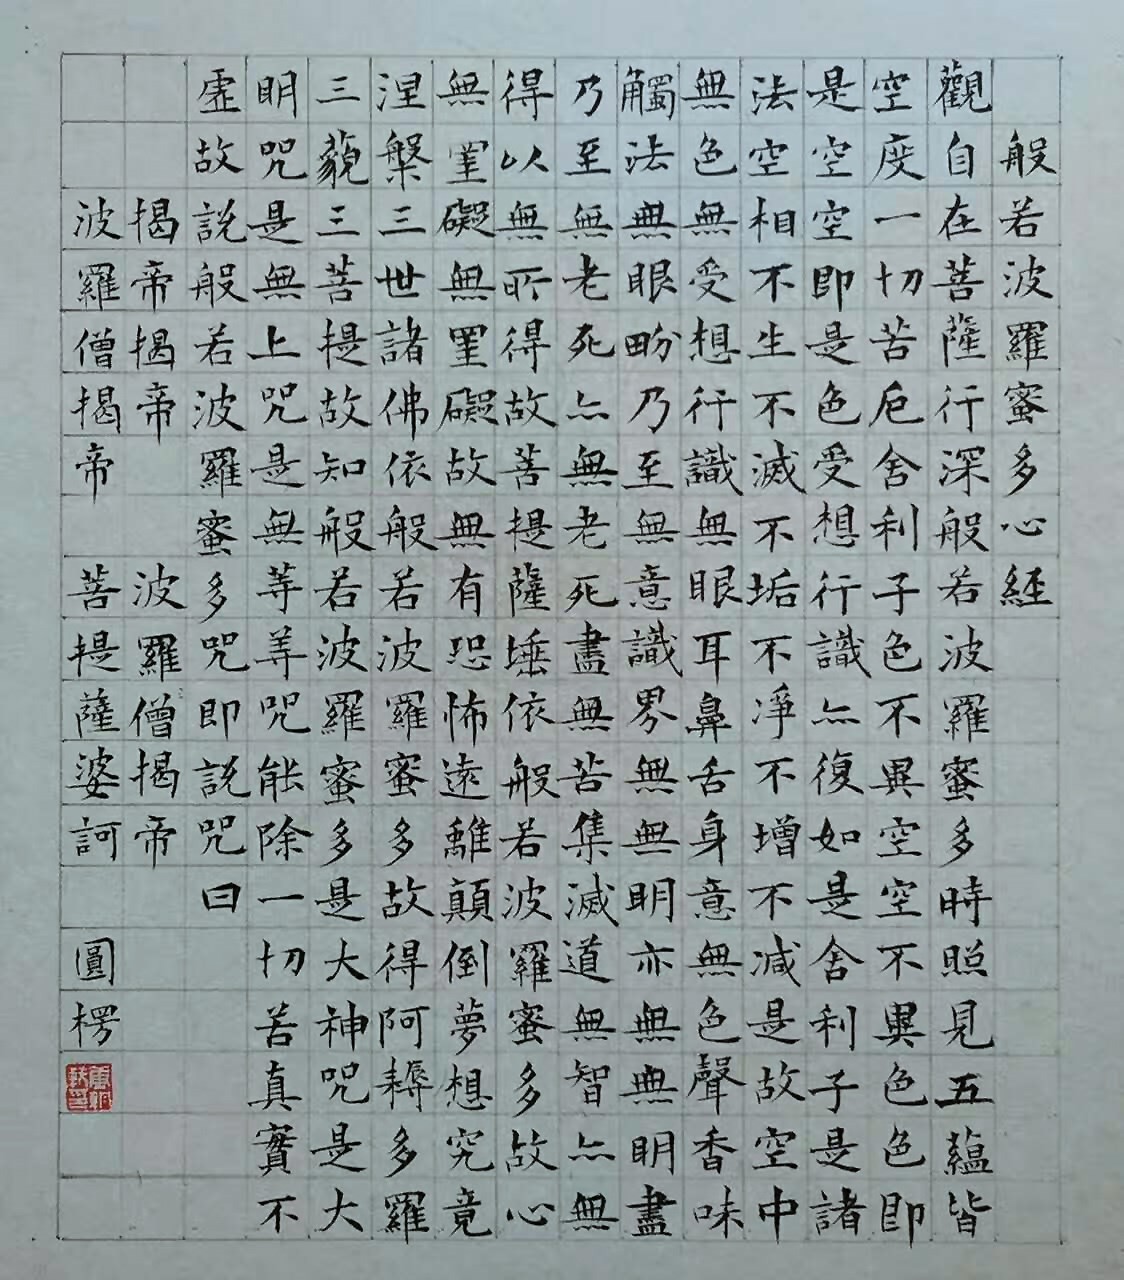 般若波羅蜜多心經
觀自在菩薩行深般若波羅蜜多時照見五蘊皆
空度一切苦厄舍利子色不異空空不異色色即
是空空即是色受想行識亦復如是舍利子是諸
法空相不生不滅不垢不淨不增不減是故空中
無色無受想行識無眼耳鼻舌身意無色聲香味
觸法無眼界乃至無意識界無無明亦無無明盡
乃至無老死亦無老死盡無苦集滅道無智亦無
得以無所得故菩提薩埵依般若波羅蜜多故心
無罣礙無罣礙故無有恐怖遠離顛倒夢想究竟
涅槃三世諸佛依般若波羅蜜多故得阿耨多羅
三藐三菩提故知般若波羅蜜多是大神咒是大
明咒是無上咒是無等等咒能除一切苦真實不
虛故說般若波羅蜜多咒即說咒曰
揭帝揭帝 波羅僧揭帝
波羅僧揭帝 菩提薩婆訶 圓楞